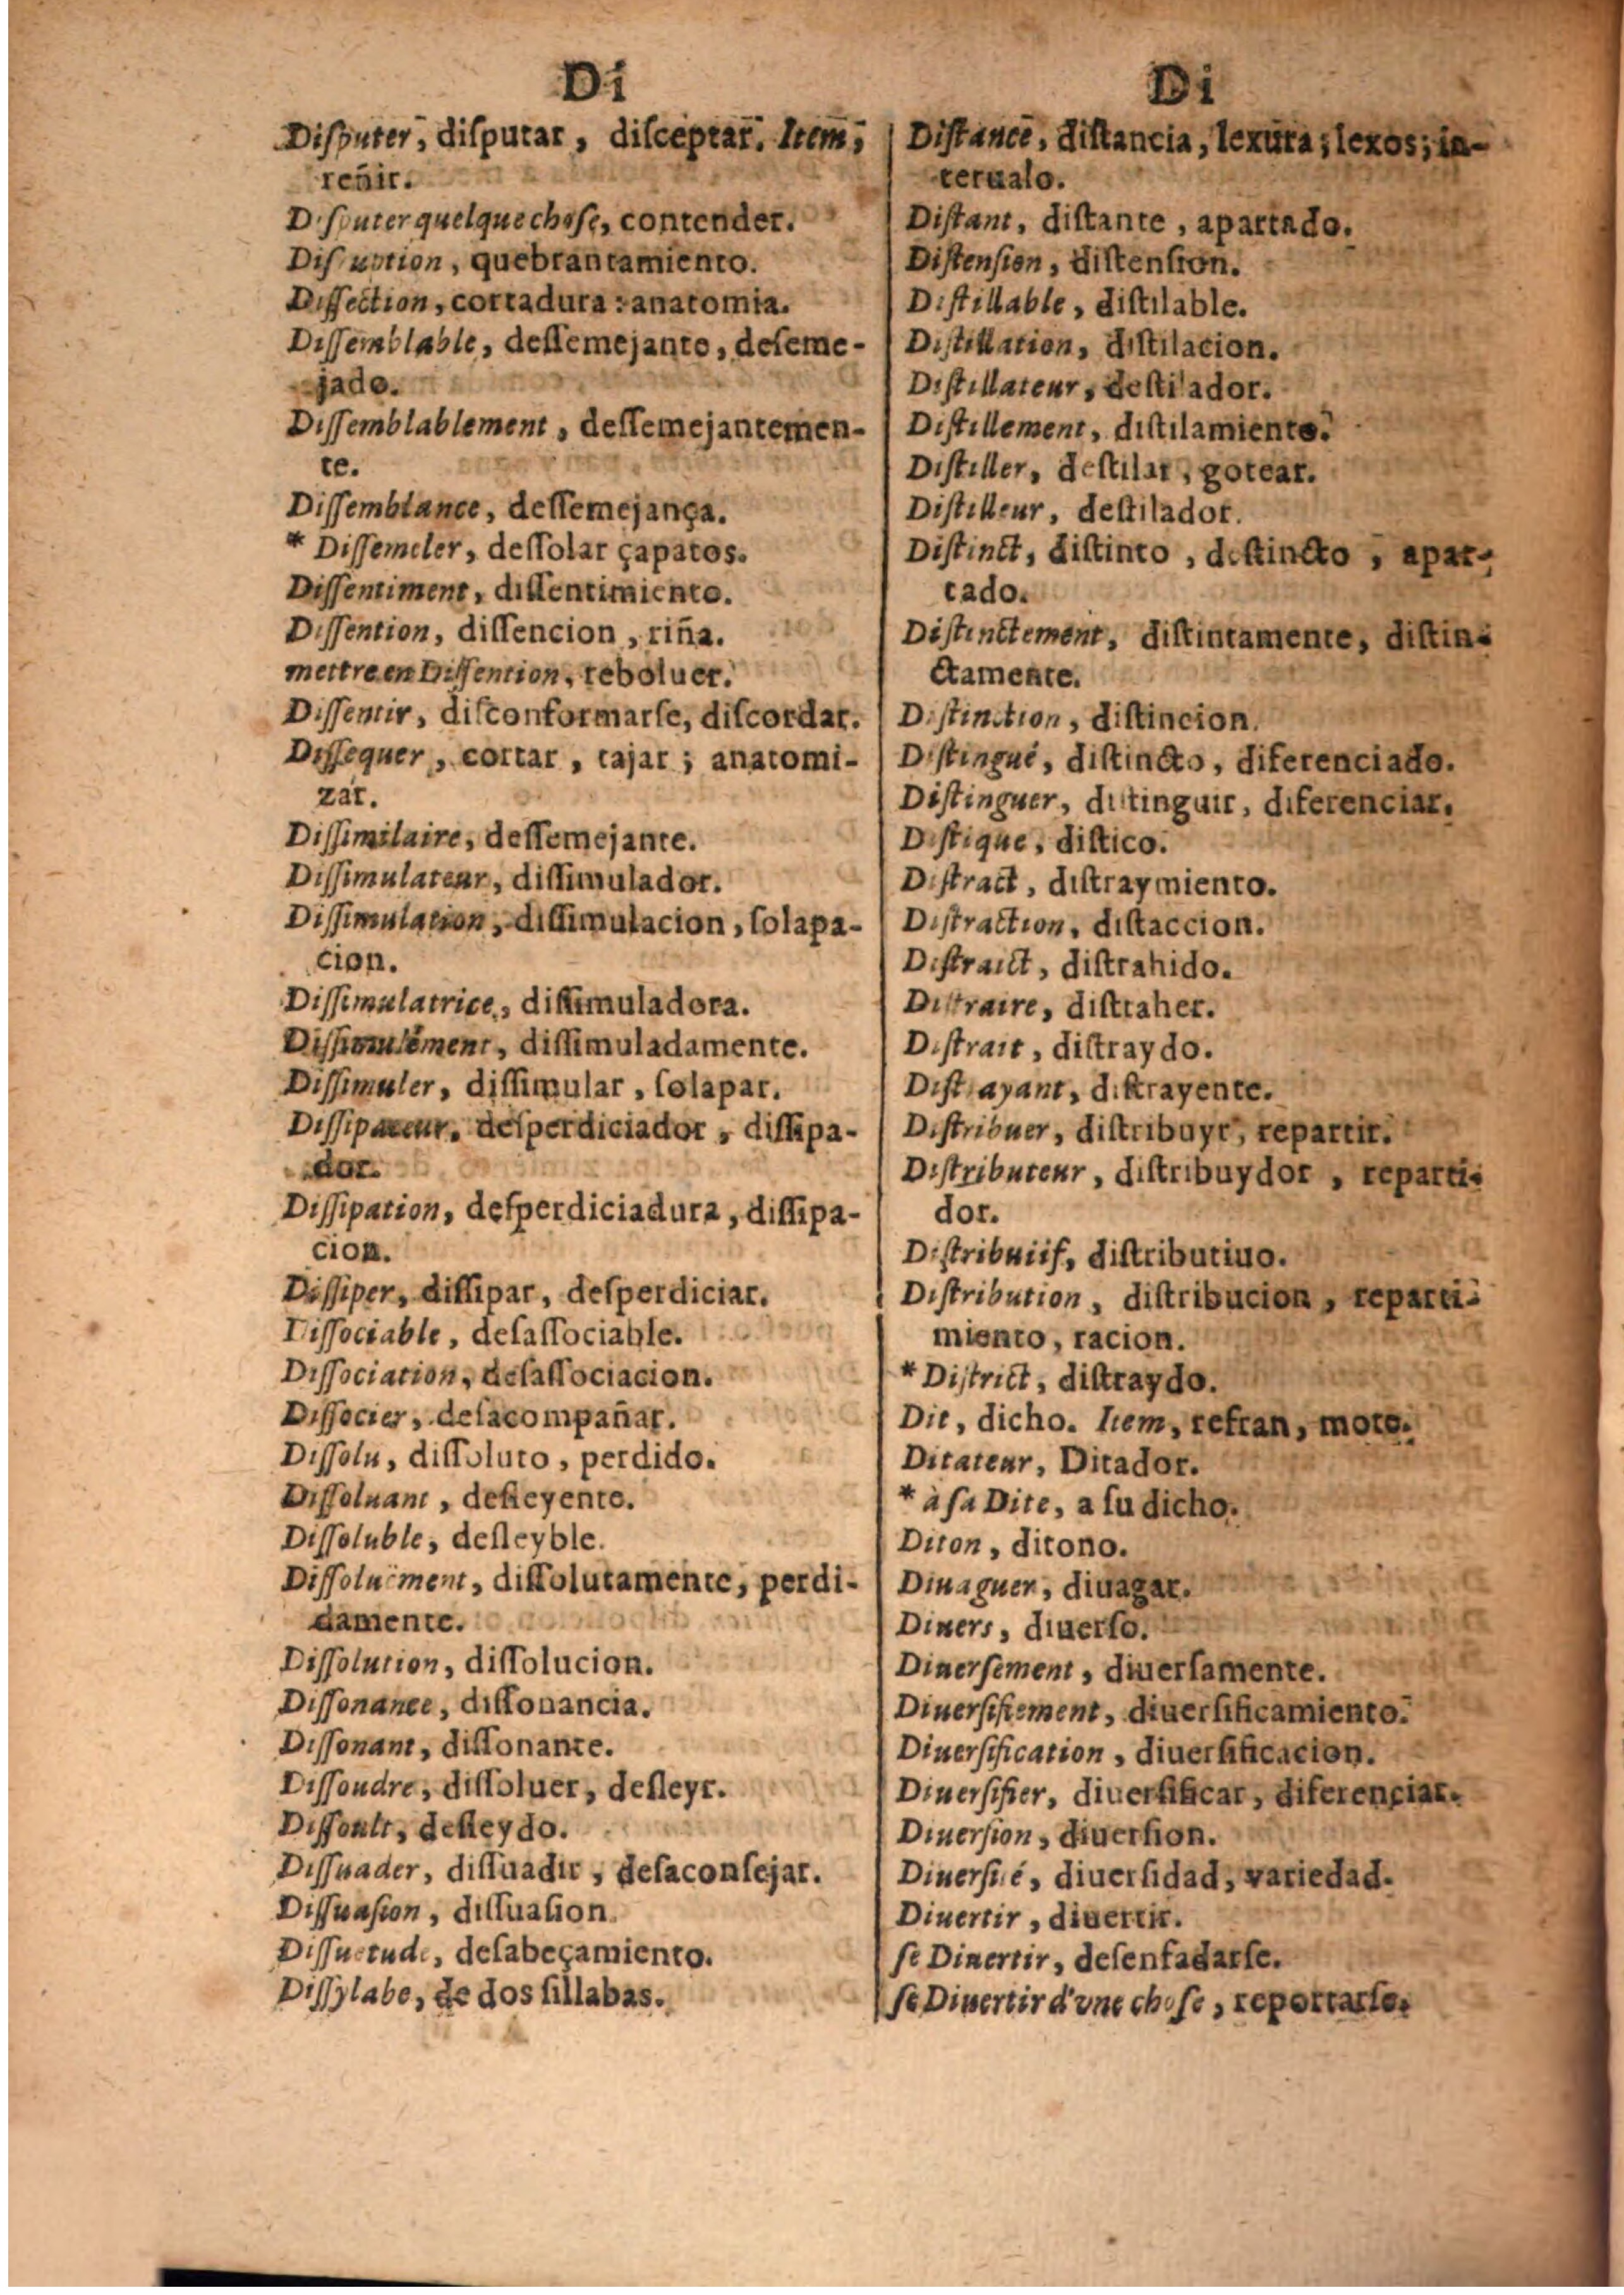 Di
Diſputer, diſputar, diſceptar. Item,
reñir.
Diſputer quelque choſe, contender.
Diſruption, quebrantamiento.
Diſſection, cortadura : anatomia.
Diſſemblable, deſſemejante, deſeme-
jado.
Diſſemblablement, deſſemejantemen-
te.
Diſſemblance, deſſemejança.
* Diſſemeler, deſſolar çapatos.
Diſſentiment, diſſentimiento.
Diſſention, diſſencion, riña.
mettre en Diſſention, reboluer.
Diſſentir, diſconformarſe, diſcordar.
Diſſequer, cortar, tajar ; anatomi-
zar.
Diſſimilaire, deſſemejante.
Diſſimulateur, diſſimulador.
Diſſimulation, diſſimulacion, ſolapa-
cion.
Diſſimulatrice, diſſimuladora.
Diſſimulément, diſſimuladamente.
Diſſimuler, diſſimular, ſolapar.
Diſſipateur, deſperdiciador, diſſipa-
dor.
Diſſipation, deſperdiciadura, diſſipa-
cion.
Diſſiper, diſſipar, deſperdiciar.
Diſſociable, deſaſſociable.
Diſſociation, deſaſſociacion.
Diſſocier, deſacompañar.
Diſſolu, diſſoluto, perdido.
Diſſoluant, deſleyente.
Diſſoluble, deſleyble.
Diſſoluëment, diſſolutamente, perdi-
damente.
Diſſolution, diſſolucion.
Diſſonance, diſſonancia.
Diſſonant, diſſonante.
Diſſoudre, diſſoluer, deſleyr.
Diſſoult, deſleydo.
Diſſuader, diſſuadir, deſaconſejar.
Diſſuaſion, diſſuaſion.
Diſſuetude, deſabeçamiento.
Diſſylabe, de dos ſillabas.
Di
Diſtance, diſtancia, lexura ; lexos ; in-
terualo.
Diſtant, diſtante, apartado.
Diſtenſion, diſtenſion.
Diſtillable, diſtilable.
Diſtillation, diſtilacion.
Diſtillateur, deſtilador.
Diſtillement, diſtilamiento.
Diſtiller, deſtilar, gotear.
Diſtilleur, deſtilador.
Diſtinct, diſtinto, deſtincto, apar-
tado.
Diſtinctement, diſtintamente, diſtin-
ctamente.
Diſtinction, diſtincion.
Diſtingué, diſtincto, diferenciado.
Diſtinguer, diſtinguir, diferenciar.
Diſtique, diſtico.
Diſtract, diſtraymiento.
Diſtraction, diſtaccion.
Diſtraict, diſtrahido.
Diſtraire, diſtraher.
Diſtrait, diſtraydo.
Diſtrayant, diſtrayente.
Diſtribuer, diſtribuyr, repartir.
Diſtributeur, diſtribuydor, reparti-
dor.
Diſtributif, diſtributiuo.
Diſtribution, diſtribucion, reparti-
miento, racion.
* Diſtrict, diſtraydo.
Dit, dicho. Item, refran, mote.
Ditateur, Ditador.
* à ſa Dite, a ſu dicho.
Diton, ditono.
Diuaguer, diuagar.
Diuers, diuerſo.
Diuerſement, diuerſamente.
Diuerſifiement, diuerſificamiento.
Diuerſification, diuerſificacion.
Diuerſifier, diuerſificar, diferenciar.
Diuerſion, diuerſion.
Diuerſité, diuerſidad, variedad.
Diuertir, diuertir.
ſe Diuertir, deſenfadarſe.
ſe Diuertir d'vne choſe, reportarſe.